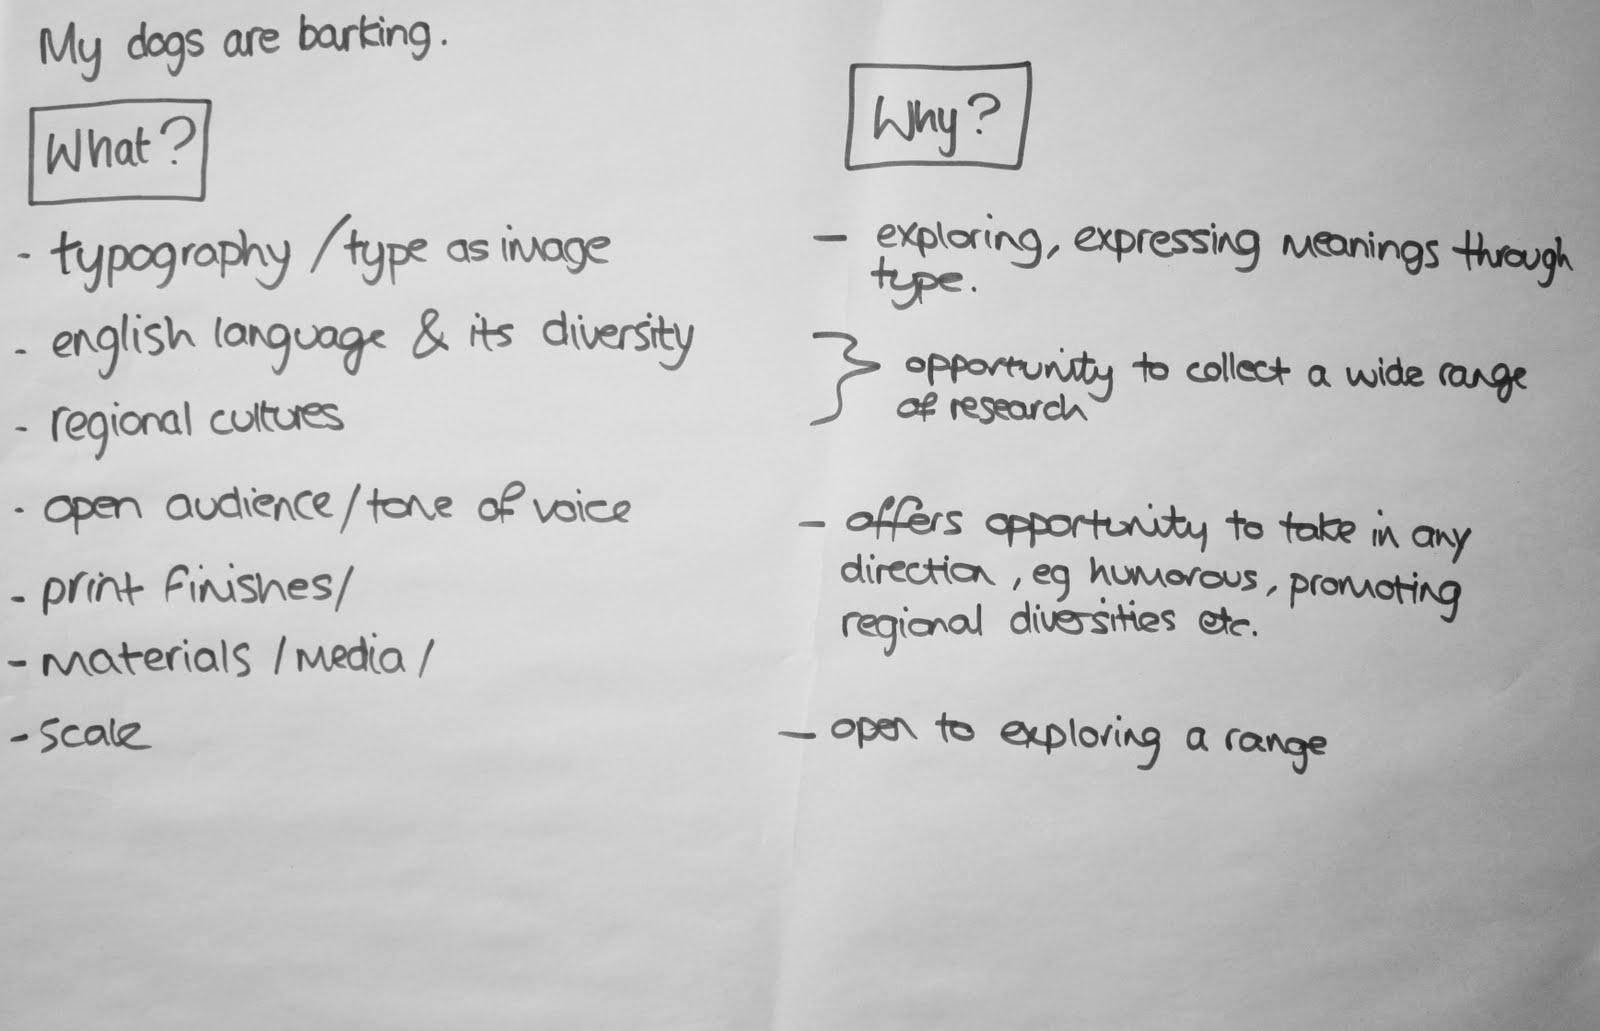 My dogs are barking.
What?
- typography / type as image
- english language & its diversity
- regional cultures
- open audience / tone of voice
- print finishes /
- materials / media /
- scale
Why?
- exploring, expressing meanings through
type.
} opportunity to collect a wide range
of research
- offers opportunity to take in any
direction, eg humorous, promoting
regional diversities etc.
- open to exploring a range